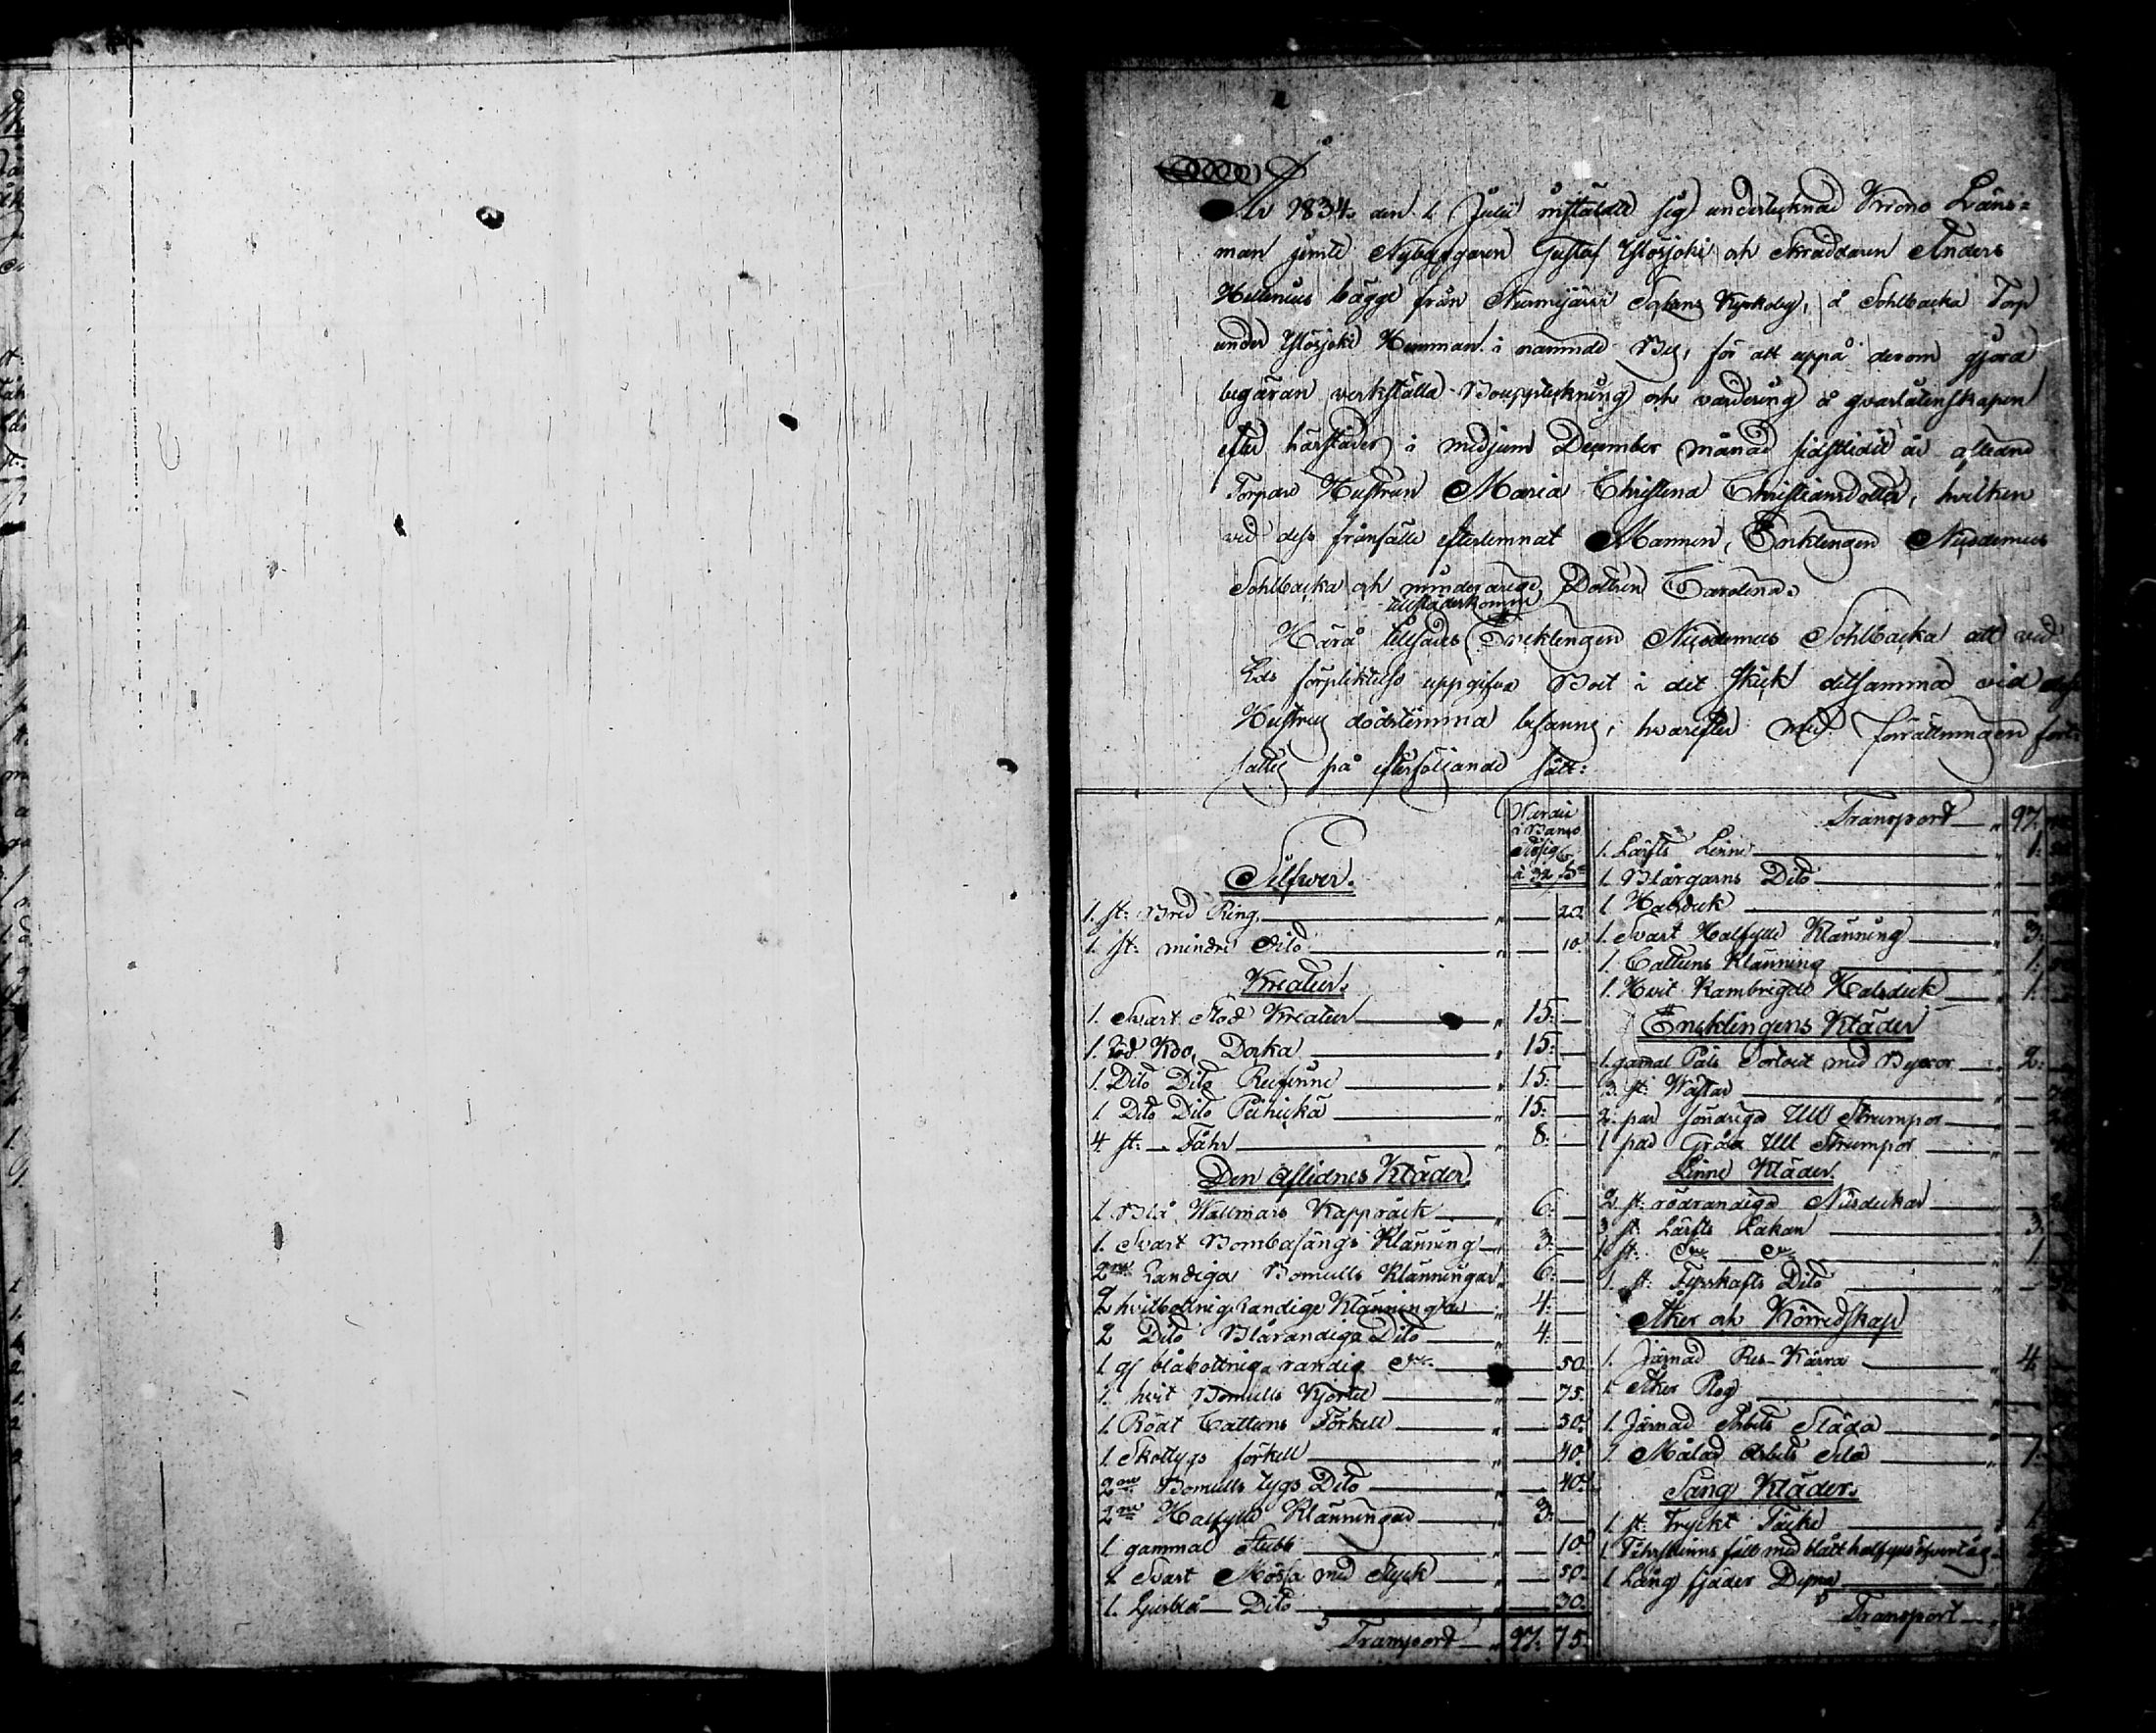 År 1834 den 1 Julii instälde sig undertecknad Krono Läns=
man jemte Nybyggaren Gustaf Ylösjoki och Skräddaren Anders
Hellenius bägge från Nurmijärvi Sockens Kyrkoby, å Sohlbacka Torp
under Ylösjoki Hemman i namnde By, för att uppå derom gjord
begäran verkställa Bouppteckning och värdering å qvarlåtenskapen
efter härstädes i medjum December månad sidstledit år afledne
Torpare Hustrun Maria Christina Christiansdotter, hvilken
vid dess frånfälle efterlemnat Mannen, Enklingen Nicodemus
Sohlbacka och minderåriga Dottren Carolina.
Härå tillsades tillstädeskomne Encklingen Nicodemus Sohlbacka att vid
Eds förpliktelse uppgifva Boet i det skick detsamma vid dess
Hustrus dödstimma befanns, hvarefter med förrättningen fort=
sattes på efterföljande sätt:
Värdie
i Banco
Assig
à
Silfwer.
1. st: Bred Ring " — 20.
1. st: mindre dito " — 10.
Kreatur.
1. Svart Stod Kreatur " 15. —
1. röd Ko, Dorka " 15. —
1. Dito Dito " 15. —
1 Dito Dito " 15: —
4 st: — Fåhr " 8: —
Den Aflidnes Kläder.
1. Blå Wallmars Kappråck " 6. —
1. Svart Bombasängs Klänning " 3. —
2ne Randiga Bomulls Klänningar " 6. —
2 hvitbottniga Randige Klänningar " 4. —
2 Dito Blårandiga Dito " 4. —
1 blåbottniga randig " — 50.
1. hvit Bomulls Kjortel " — 75.
1. Rödt Cattuns Förkell " — 50.
1. förkell " — 40.
2ne Bomulls tygs Dito " — 40.
2ne Halfylle Klänningar " 3. —
1 gammal Stubb " — 10.
1 Svart Mössa med Styck " — 50.
1. Ljusblå — Dito " — 30.
Transport " 97. 75.
Transport " 97.
1. Lärfts Linne " 1.
1. Blårgarns Dito " —
1 Halsduk " —
1. Svart Halfylle Klänning " 3. —
1. Cattuns Klänning " 1.
1. Hvit Kambrigds Halsduk " 1.
Encklingens Kläder
1. gamal Päls med Byxor " 2:
3. st: Västar " —
2. par söndriga Ull Strumpor " —
1 par Gråa Ull Strumpor " —
Linne Kläder.
2 st: rödrandiga Näsdukar " —
3 st: Lärfts Lakan " 3.
1 st: 1.
1. st: Fyrskafts Dito
Åker och Körredskap
1. Järnad Res-Kärra " 4. —
1. Åker Plog
1. Järnad Arbets Släda
1. Målad Arbets dito " 1.
Säng Kläder.
1 st: Tryckt Täcke 1.
1. Fåhrskinns fäll med blått halfylls
1. Lång fjäder Dyna
Transport